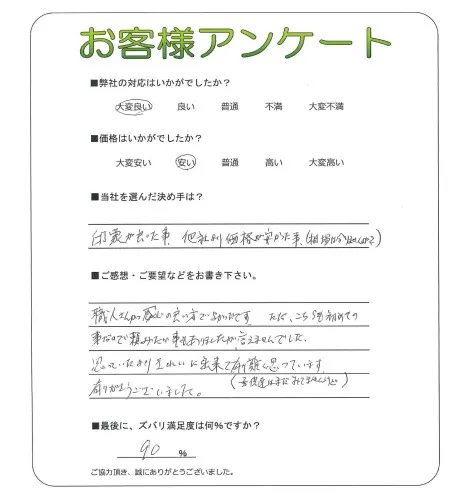 お客様アンケート
■弊社の対応はいかがでしたか？
大変良い 良い 普通 不満 大変不満
■価格はいかがでしたか？
大変安い 安い 普通 高い 大変高い
■当社を選んだ決め手は？
印象が良かった事、他社より価格が安かった事、
■ご感想・ご要望などをお書き下さい。
職人さんが感じの良い方で良かったです ただ、こちらも初めての
事なので頼みたい事もありましたが言えませんでした。
思っていたよりきれいに出来て有り難く思っています。
有りがとうございました。
■最後に、ズバリ満足度は何％ですか？
90 ％
ご協力頂き、誠にありがとうございました。